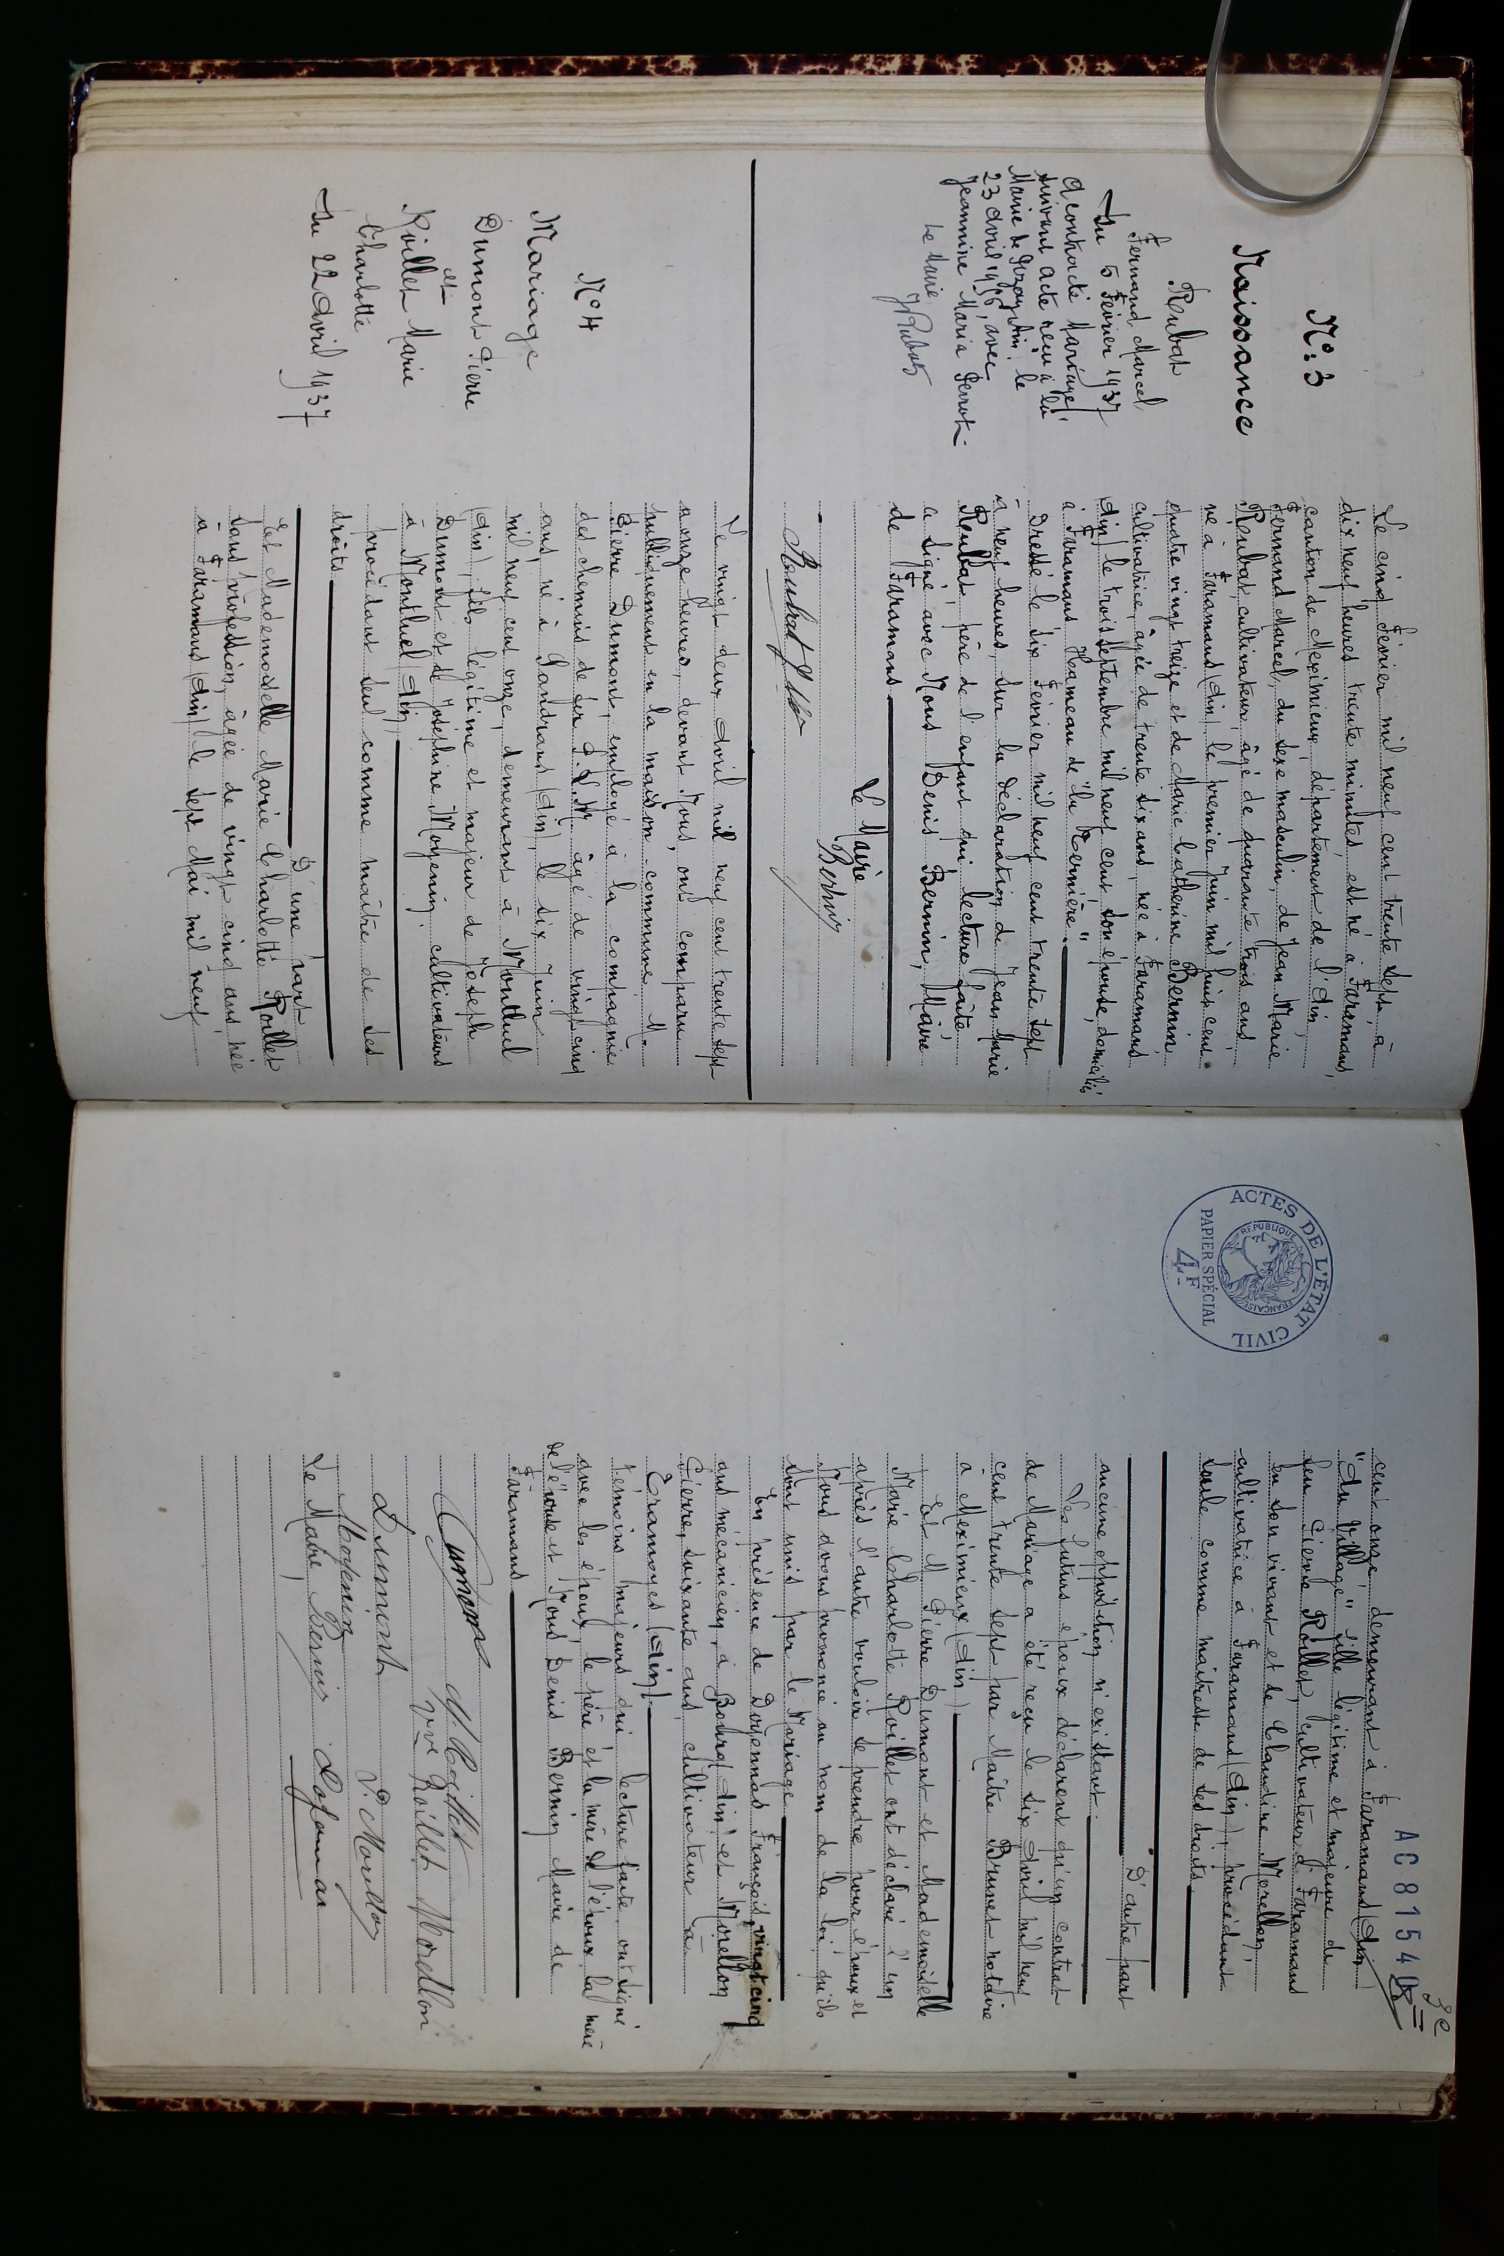 N°: 3
Naissance
Reubat
Fernand Marcel
Du 5 Février 1937
A contracté Mariage
suivant acte reçu à la
Mairie de
23 avril 1956, avec
Jeannine Maria Perrot.
Le Maire
Le cinq Février mil neuf cent trente sept, à
dix neuf heures trente minutes, est né à Faramans,
canton de Meximieux, département de l'Ain,
Fernand Marcel, du sexe masculin, de Jean Marie
Reubat, cultivateur, âgé de quarante trois ans,
né à Faramans (Ain) le premier Juin mil huit cent
quatre vingt treize et de Marie Cathérine Bernin
cultivatrice, âgée de trente six ans, née à Faramans
(Ain) le trois septembre mil neuf cent, son épouse, domiciliés
à Faramans Hameau de "la Vernière".
Dressé le six Février mil neuf cent trente sept
à neuf heures, sur la déclaration de Jean Marie
Reubat, père de l'enfant qui, lecture faite,
a signé avec Nous Denis Bernin, Maire
de Faramans
Le Maire
Bernin
Reubat J M
N° 4
Mariage
Dumont Pierre
et
Roillet Marie
Charlotte
Du 22 Avril 1937
Le vingt deux Avril mil neuf cent trente sept
à onze heures, devant Nous, ont comparu
publiquement en la maison commune M.
Pierre Dumont, employé à la compagnie
des chemins de fer P.L.M. âgé de vingt cinq
ans, né à Sandrans (Ain), le six Juin
mil neuf cent onze, demeurant à Montluel
(Ain), fils légitime et majeur de Joseph
Dumont et de Joséphine Moyenin, cultivateurs
à Montluel (Ain)
procédant seul comme maître de ses
droits
D'une part
Et Mademoiselle Marie Charlotte Roillet
sans profession, âgée de vingt cinq ans, née
à Faramans (Ain) le sept Mai mil neuf
ACTES DE L'ÉTAT CIVIL
RÉPUBLIQUE FRANÇAISE
PAPIER SPÉCIAL
4F
AC 8154
cent onze, demeurant à Faramans (Ain)
"Au Village" fille légitime et majeure de
feu Pierre Roillet, cultivateur à Faramans
en son vivant et de Claudine Morellon,
cultivatrice à Faramans (Ain), procédant
seule comme maîtresse de ses droits
D'autre part
aucune opposition n'existant.
Les futurs époux déclarent qu'un contrat
de Mariage a été reçu le six Avril mil neuf
cent trente sept par Maître Brunet notaire
à Meximieux (Ain)
Et M Pierre Dumont et Mademoiselle
Marie Charlotte Roillet ont déclaré l'un
après l'autre vouloir se prendre pour époux et
Nous avons prononcé au nom de la loi qu'ils
sont unis par le Mariage
En présence de Doyennas François, vingt cinq
ans mécanicien, à Bourg (Ain) et Morellon
Pierre, soixante ans, cultivateur à
Tramoyes (Ain)
témoins majeurs qui lecture faite ont signé
avec les époux, le père et la mère de l'époux la mère
de l'épouse et Nous Denis Bernin Maire de
Faramans
Dumont
M. Roillet
Vve Roillet Morellon
Dumont
P. Morellon
Moyenin
Le Maire, Bernin